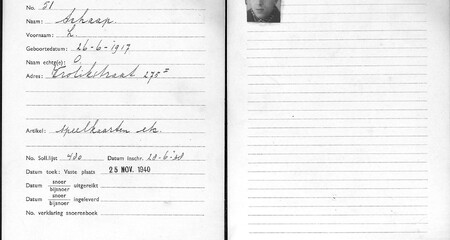 No. 51
Naam: Schaap.
Voornaam: L.
Geboortedatum: 26-6-1917
Naam echtg(e): O,
Adres: Trolikstraat 275 II
Artikel: speelkaarten ek.
No. Soll.lijst 480 Datum inschr. 20-6-38
Datum toek: Vaste plaats 25 NOV. 1940
Datum snoer bijsnoer uitgereikt
Datum snoer bijsnoer ingeleverd
No. verklaring snoerenboek